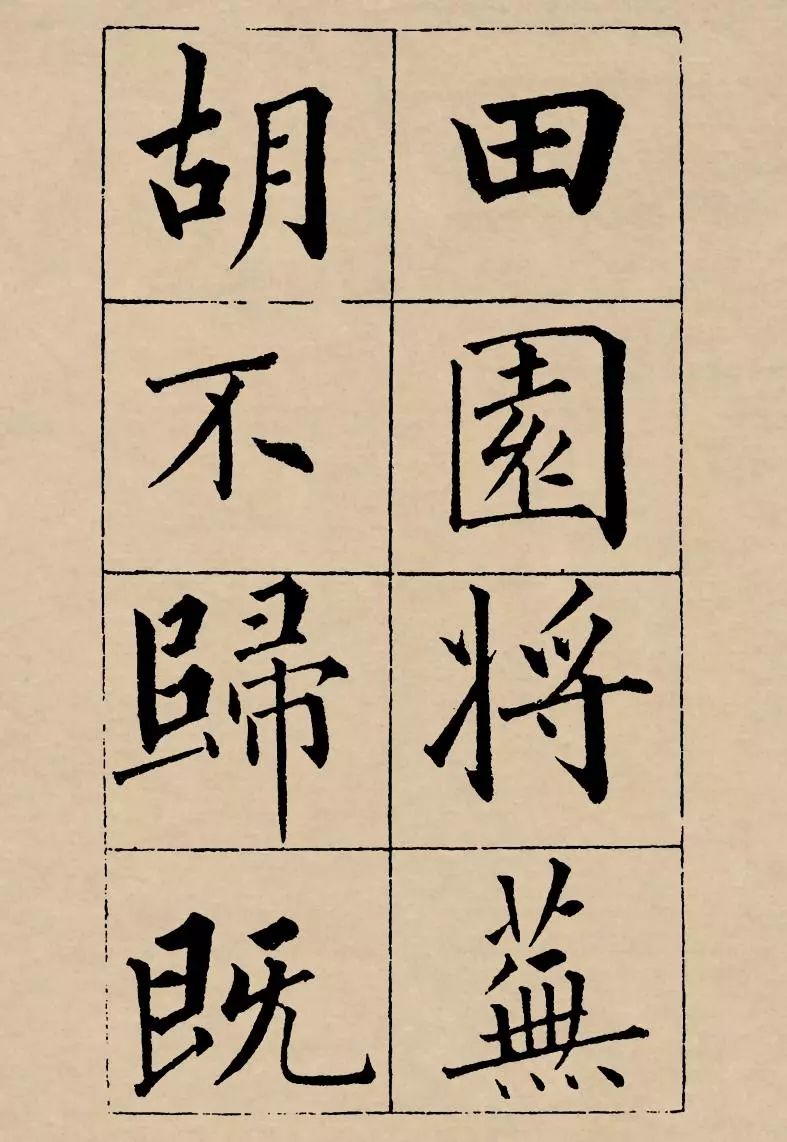 田園將蕪
胡不歸既